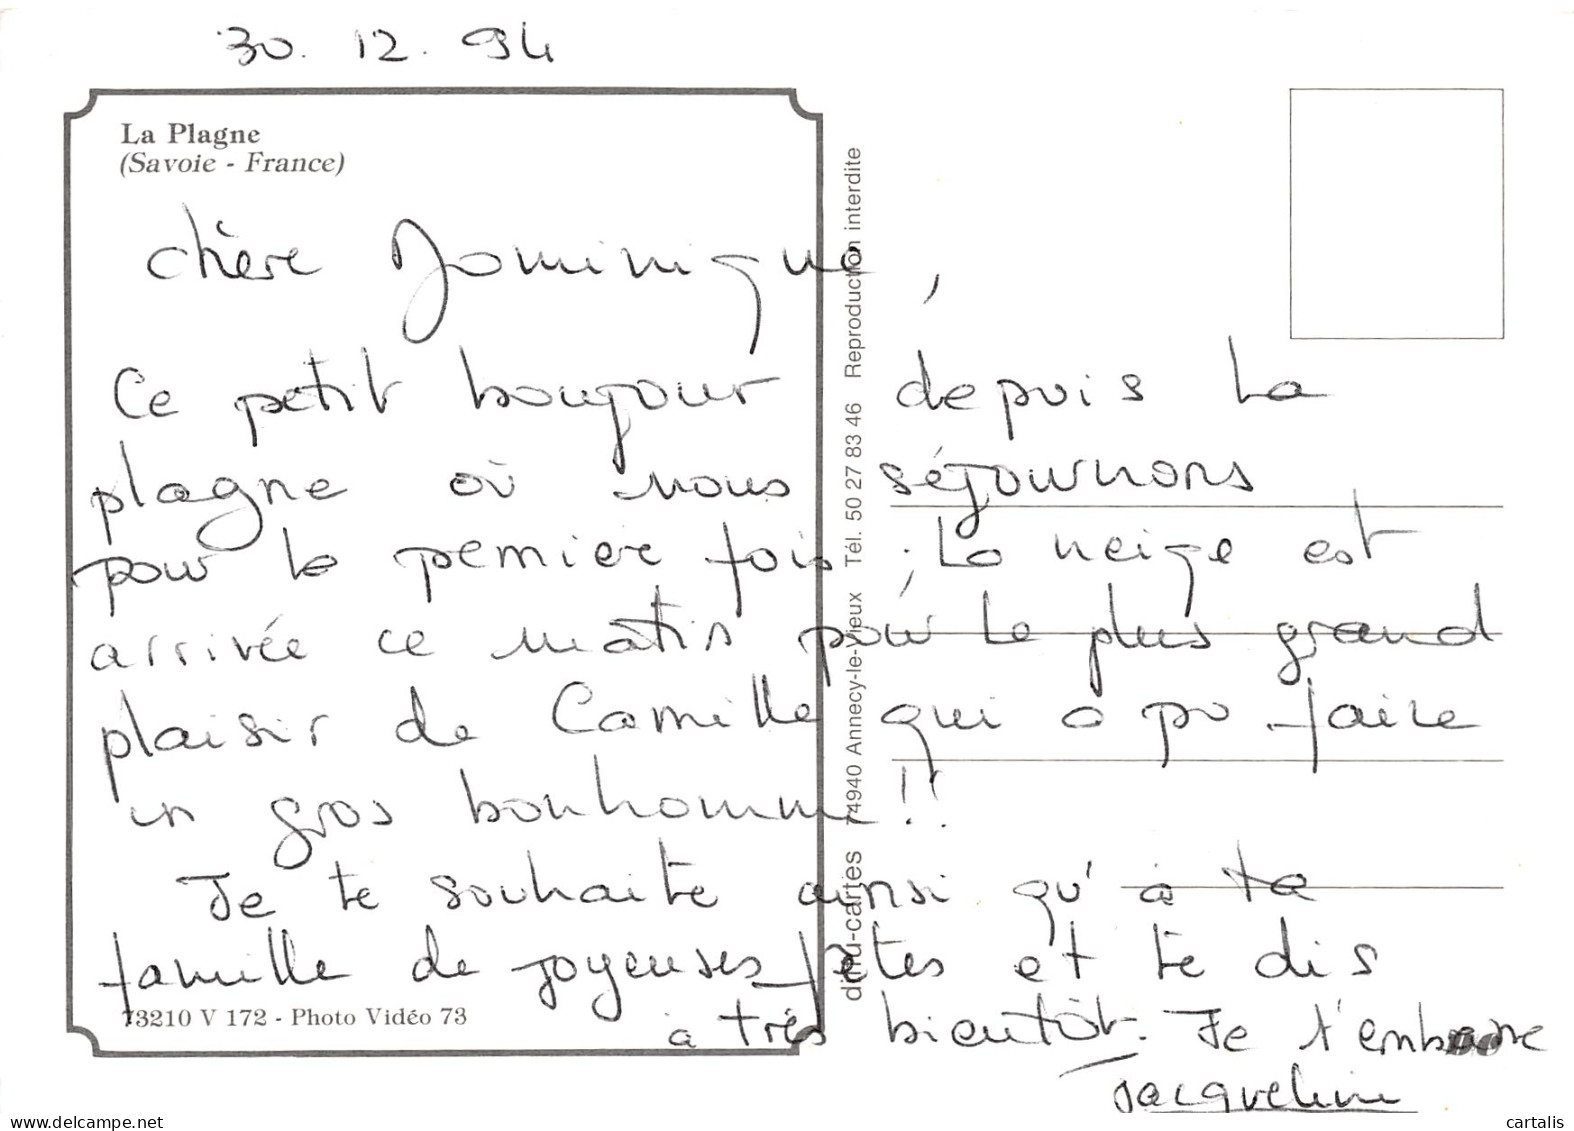 30. 12. 94
La Plagne
(Savoie - France)
chère Dominique,
Ce petit boujour depuis la
plagne où nous séjournons
pour la pemiere fois. La neige est
arrivée ce matin pour le plus grand
plaisir de Camille qui a pu faire
un gros bonhomme !!
Je te souhaite ainsi qu'à ta
famille de joyeuses fêtes et te dis
à très bientôt. Je t'embrasse
Jacqueline
73210 V 172 - Photo Vidéo 73
74940 Annecy-le-Vieux Tél. 50 27 83 46 Reproduction interdite
delcampe.net
cartalis